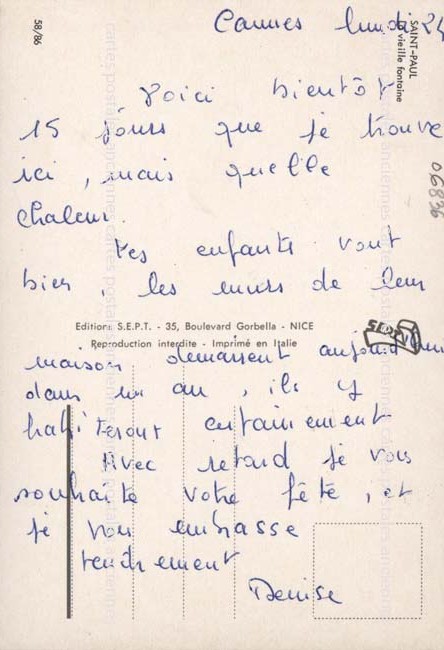 Cannes lundi 24
SAINT-PAUL
La vieille fontaine
58/86
Voici bientôt
15 jours que je trouve
ici, mais quelle
chaleur.
Mes enfants vont
bien les murs de leur
Editions S.E.P.T. - 35, Boulevard Gorbella - NICE
Reproduction interdite - Imprimé en Italie
SEPT
06836
maison demarrent aujourd'hui
dans un an, ils y
habiteront certainement
Avec retard je vous
souhaite votre fête, et
je vous embrasse
tendrement
Denise